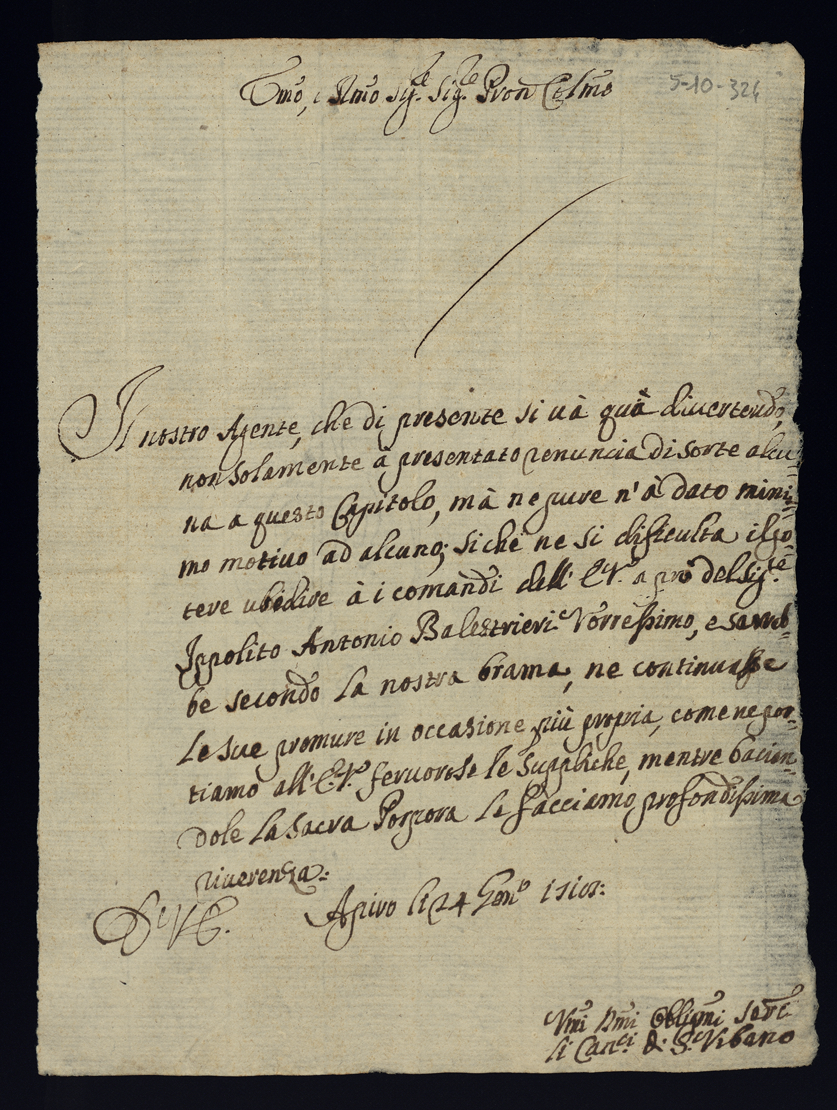 Emo, e Rmo Sig.re Sig.re Pron Colmo
5-10-324
Il nostro Agente, che di presente si và quà divertendo,
non solamente à presentato renuncia di sorte alcu-
na a questo Capitolo, mà ne pure n'à dato mini-
mo motivo ad alcuno; siche ne si difficulta il po-
tere ubedire à i comandi dell' E.V. a prò del Sig.re
Ippolito Antonio Balestrieri. Vorressimo, e sareb-
be secondo la nostra brama, ne continuasse
le sue premure in occasione più propria, come ne por-
tiamo all' E.V. fervorose le suppliche, mentre bacian-
dole la Sacra Porpora le facciamo profondissima
riverenza.
D. V. E. Apiro li 24 Gen.o
Vmi Dmi Obbligmi Serv.i
li Can.ci di S. Vrbano